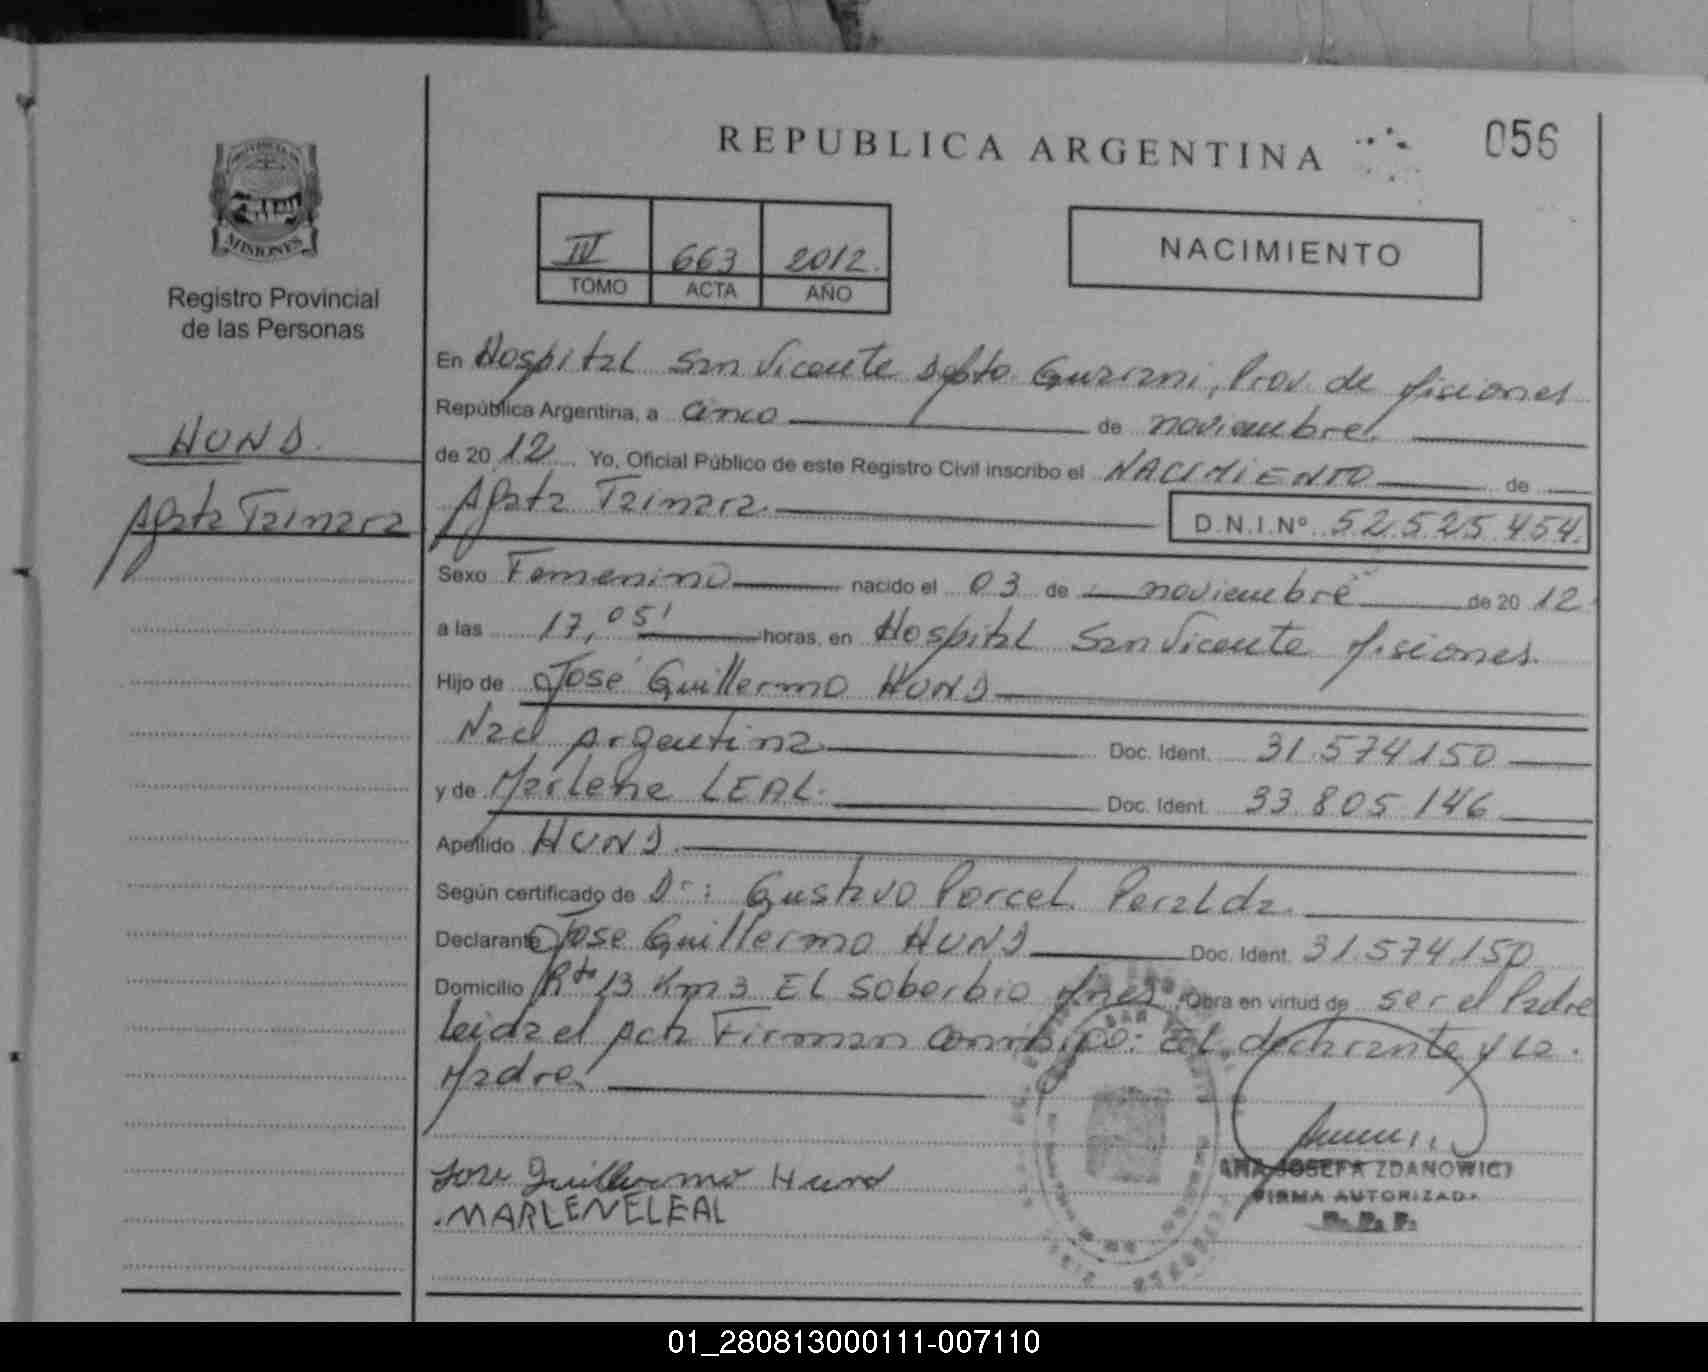 REPUBLICA ARGENTINA
056
MISIONES
Registro Provincial
de las Personas
IV 663 2012.
TOMO ACTA AÑO
NACIMIENTO
HUND.
Agata Tainara
En Hospital San Vicente Dpto. Guarani, Prov. de Misiones
República Argentina, a cinco de noviembre.
de 2012 Yo, Oficial Público de este Registro Civil inscribo el NACIMIENTO de
Agata Tainara. D.N.I.Nº 52.525.454.
Sexo Femenino nacido el 03 de noviembre de 2012
a las 17,05' horas, en Hospital San Vicente Misiones.
Hijo de José Guillermo HUND
Nac Argentina Doc. Ident. 31.574.150
y de Marlene LEAL. Doc. Ident. 33.805.146
Apellido HUND.
Según certificado de Dr: Gustavo Porcel Peralda.
Declarante Jose Guillermo HUND Doc. Ident. 31.574.150
Domicilio Rta 13 Km 3 El Soberbio Mnes. Obra en virtud de ser el Padre
Leida el Acta Firman conmigo: El declarante y la
Madre.
Jose Guillermo Hund
MARLENE LEAL
ANA JOSEFA ZDANOWICZ
FIRMA AUTORIZADA
R. P. P.
01_280813000111-007110